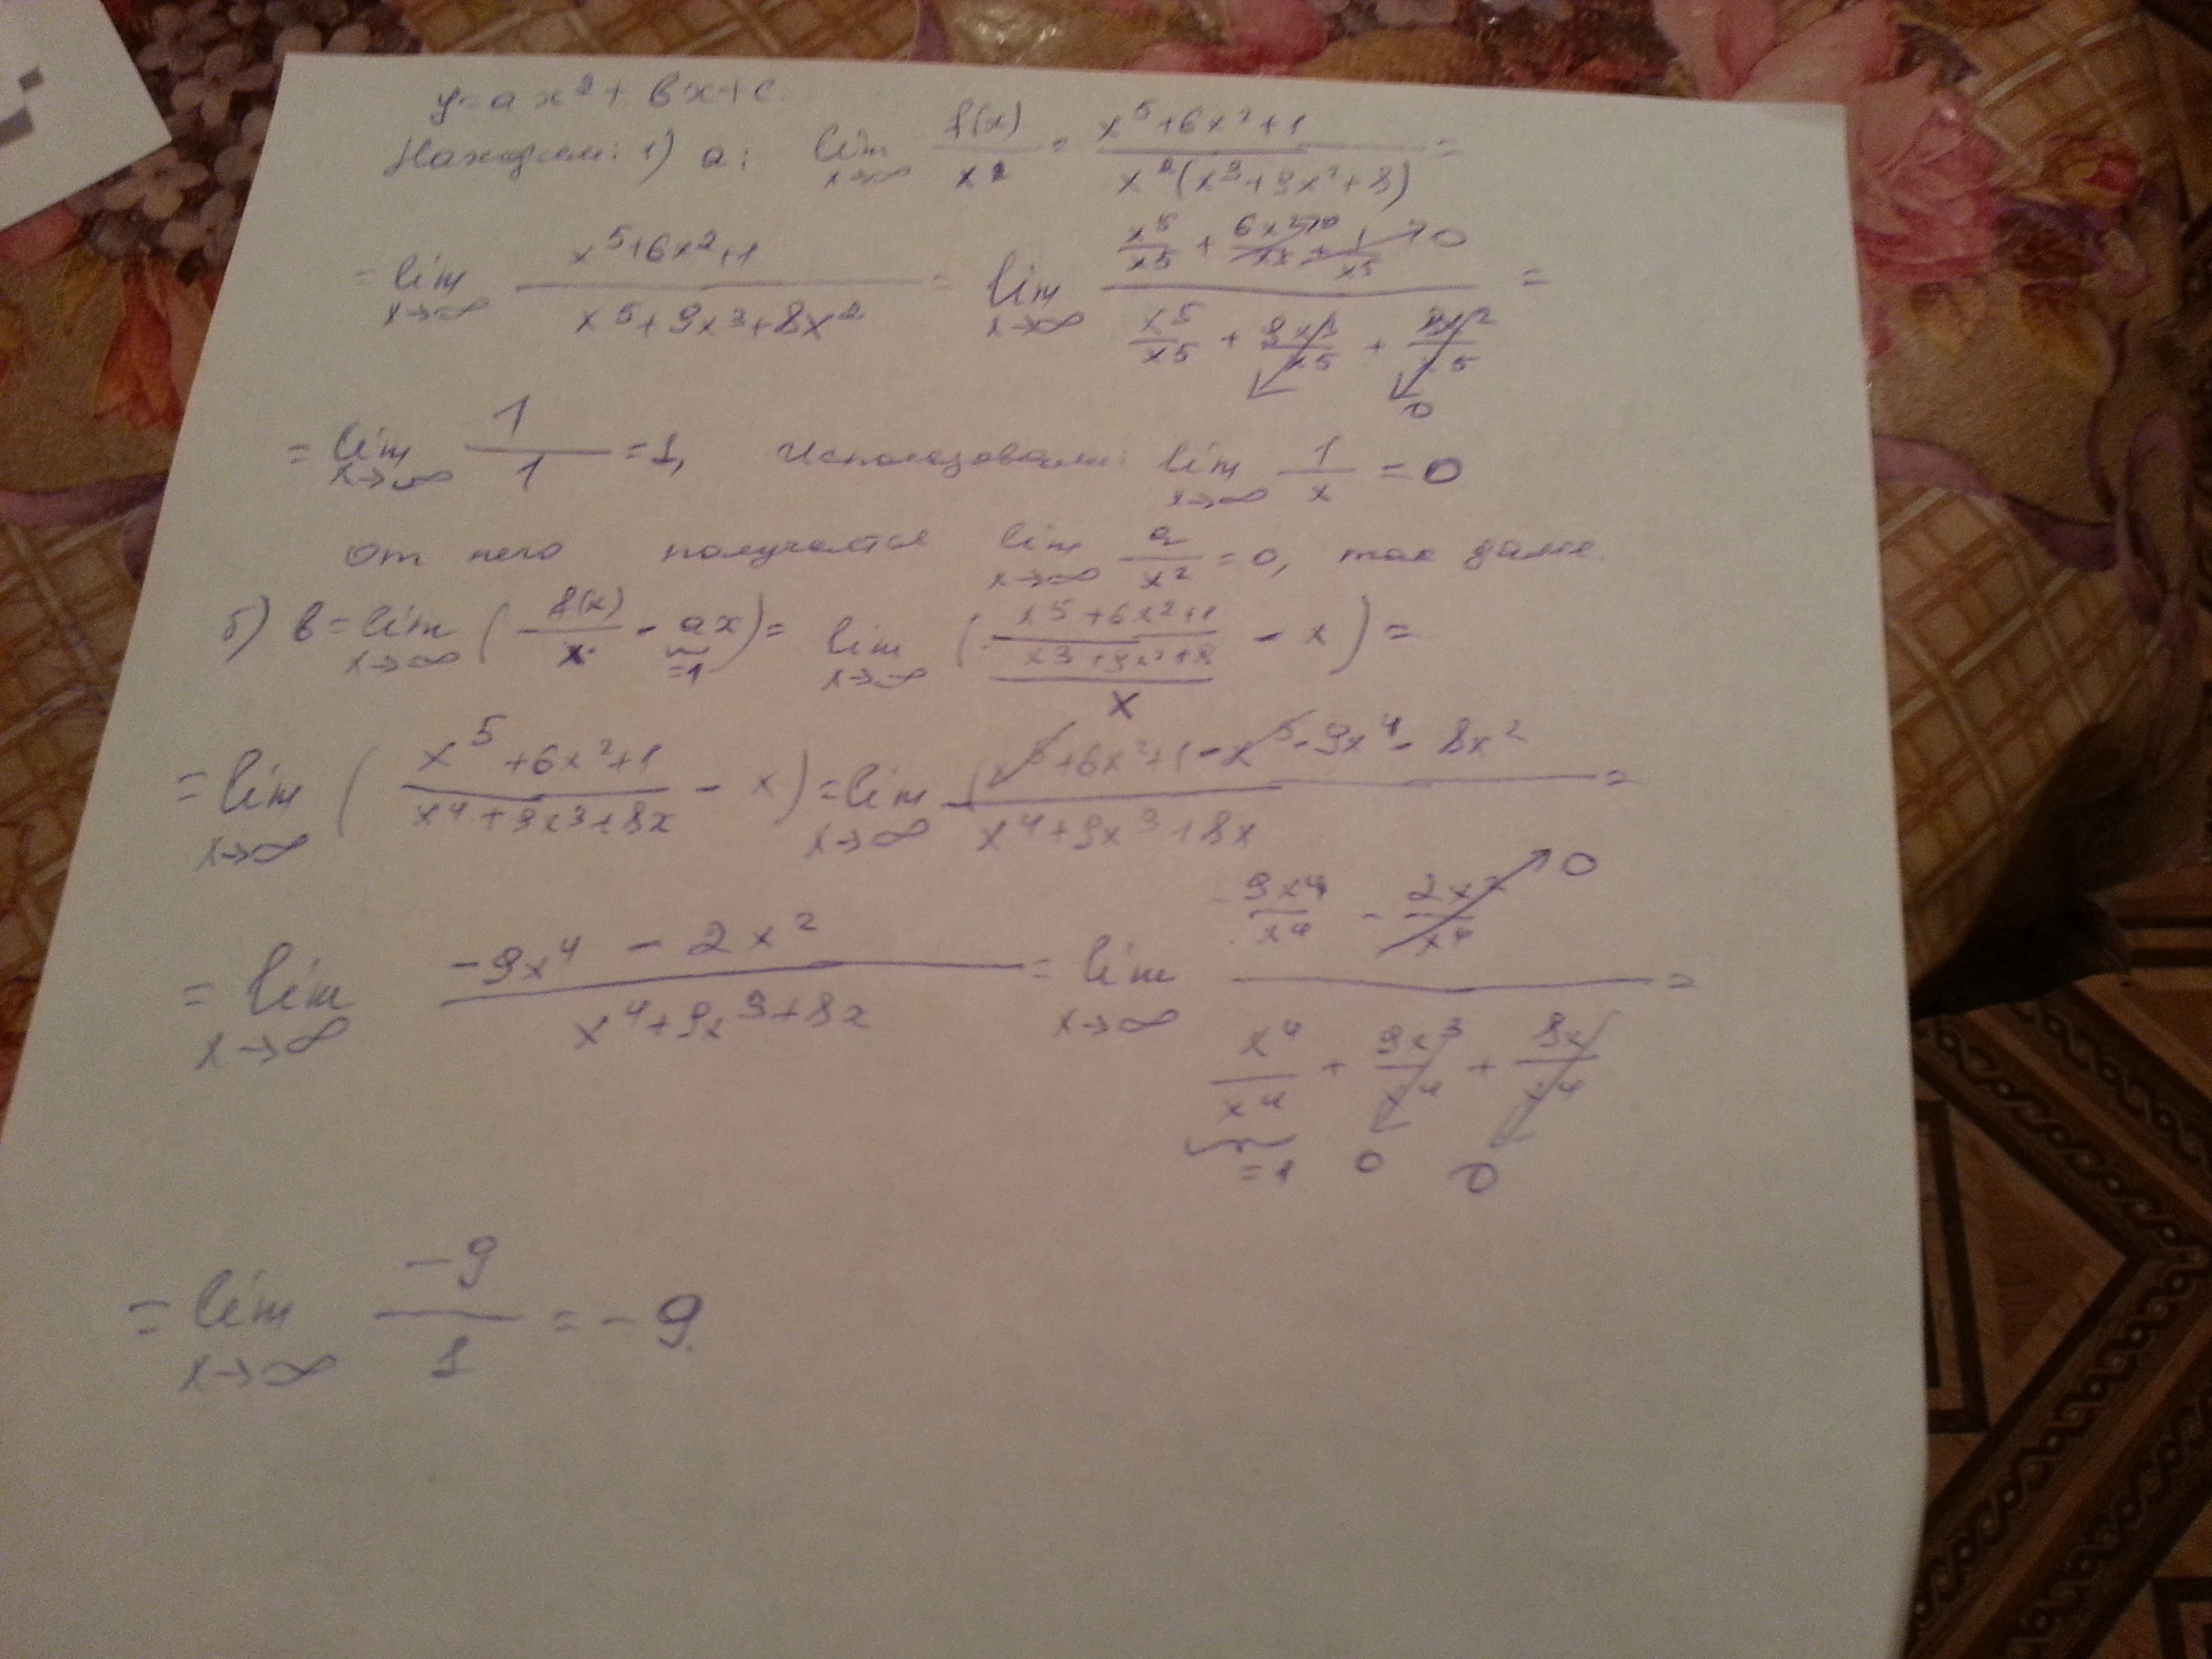 y=ax²+bx+c.
Находим: 1) a: lim x→∞ f(x)/x² = (x⁵+6x²+1)/(x²(x³+9x²+8)) =
= lim x→∞ (x⁵+6x²+1)/(x⁵+9x³+8x²) = lim x→∞ (x⁵/x⁵ + 6x²/x⁵ + 1/x⁵ → 0)/(x⁵/x⁵ + 9x³/x⁵ + 8x²/x⁵ → 0) =
= lim x→∞ 1/1 = 1, использовали: lim x→∞ 1/x = 0
от него получается lim x→∞ a/x² = 0, так далее.
б) b = lim x→∞ (f(x)/x - ax) = lim x→∞ (((x⁵+6x²+1)/(x³+9x²+8))/x - x) =
=1
= lim x→∞ ((x⁵+6x²+1)/(x⁴+9x³+8x) - x) = lim x→∞ (x⁵+6x²+1-x⁵-9x⁴-8x²)/(x⁴+9x³+8x) =
= lim x→∞ (-9x⁴ - 2x²)/(x⁴+9x³+8x) = lim x→∞ (-9x⁴/x⁴ - 2x²/x⁴ → 0)/(x⁴/x⁴ + 9x³/x⁴ + 8x/x⁴) =
=1 0 0
= lim x→∞ -9/1 = -9.